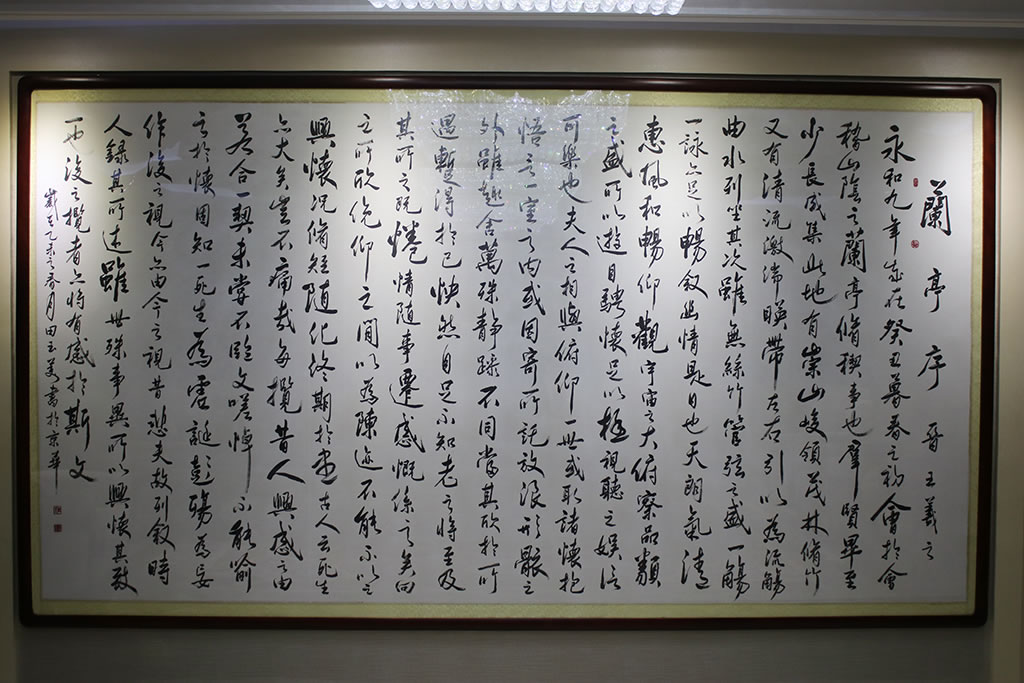 蘭亭序 晉王羲之
永和九年歲在癸丑暮春之初會於會
稽山陰之蘭亭脩稧事也群賢畢至
少長咸集此地有崇山峻領茂林脩竹
又有清流激湍暎帶左右引以為流觴
曲水列坐其次雖無絲竹管弦之盛一觴
一詠亦足以暢敘幽情是日也天朗氣清
惠風和暢仰觀宇宙之大俯察品類
之盛所以遊目騁懷足以極視聽之娛信
可樂也夫人之相與俯仰一世或取諸懷抱
悟言一室之內或因寄所託放浪形骸之
外雖趣舍萬殊靜躁不同當其欣於所
遇暫得於己快然自足不知老之將至及
其所之既惓情隨事遷感慨係之矣向
之所欣俛仰之間以為陳迹不能不以之
興懷況脩短隨化終期於盡古人云死生
亦大矣豈不痛哉每攬昔人興感之由
若合一契未嘗不臨文嗟悼不能喻
之於懷固知一死生為虛誕彭殤為妄
作後之視今亦由今之視昔悲夫故列敘時
人錄其所述雖世殊事異所以興懷其致
一也後之攬者亦將有感於斯文
歲在乙未之春月田玉美書於京華